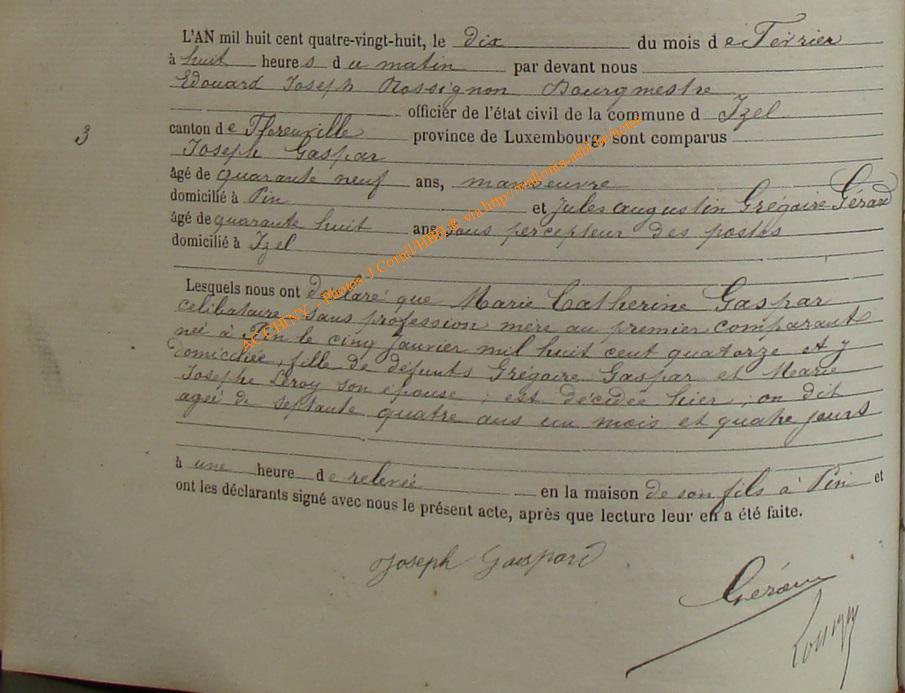 L'AN mil huit cent quatre-vingt-huit, le dix du mois de Février
à huit heures du matin par devant nous
Edouard Joseph Rossignon Bourgmestre
officier de l'état civil de la commune d Izel
3
canton de Florenville province de Luxembourg, sont comparus
Joseph Gaspar
âgé de quarante neuf ans, manoeuvre
domicilié à Pin et Jules augustin Grégoire Gérard
âgé de quarante huit ans, sous percepteur des postes
domicilié à Izel
Lesquels nous ont déclaré que Marie Catherine Gaspar
célibataire, sans profession mère au premier comparant
née à Pin le cinq Janvier mil huit cent quatorze et y
domiciliée, fille de défunts Grégoire Gaspar et Marie
Josephe Leroy son épouse ; est décédée hier ; on dit
agée de septante quatre ans un mois et quatre jours
à une heure de relevée en la maison de son fils à Pin et
ont les déclarants signé avec nous le présent acte, après que lecture leur en a été faite.
Joseph Gaspard
Gérard
ACCHINY - Photos J Cornil/HBI.© via http://wallonia-asbl.be/actes